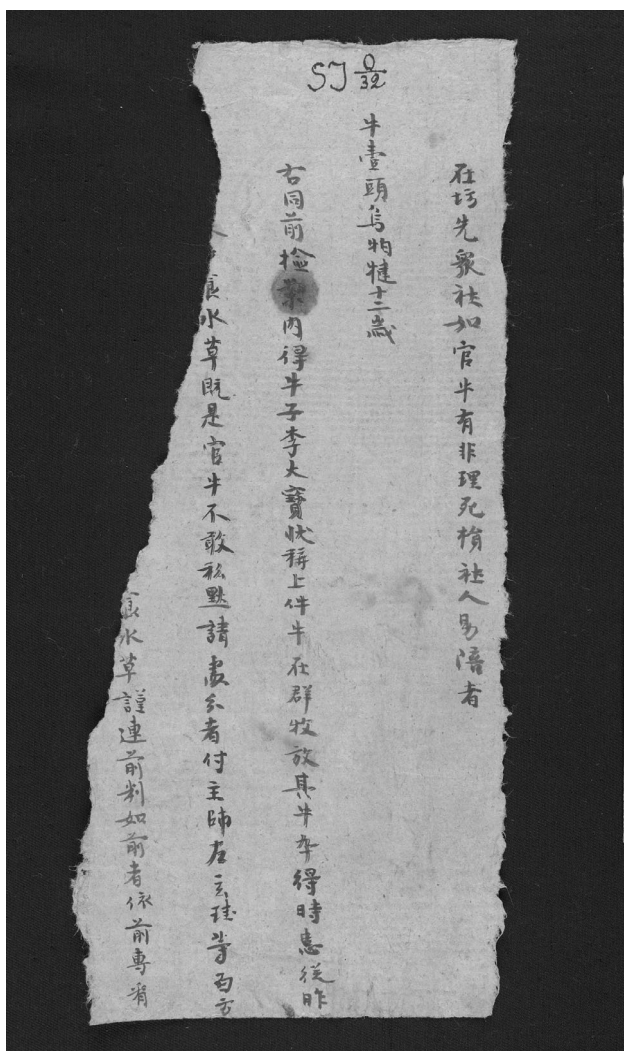 SI O/32
在坊先衆社如官牛有非理死損社人易陪者
牛壹頭烏牸犍十二歲
右同前檢案內得牛子李大寶狀稱上件牛在群牧放其牛卒得時患從昨
食水草既是官牛不敢私點請處分者付主帥左玄珪等百方
食水草謹連前判如前者依前專狥